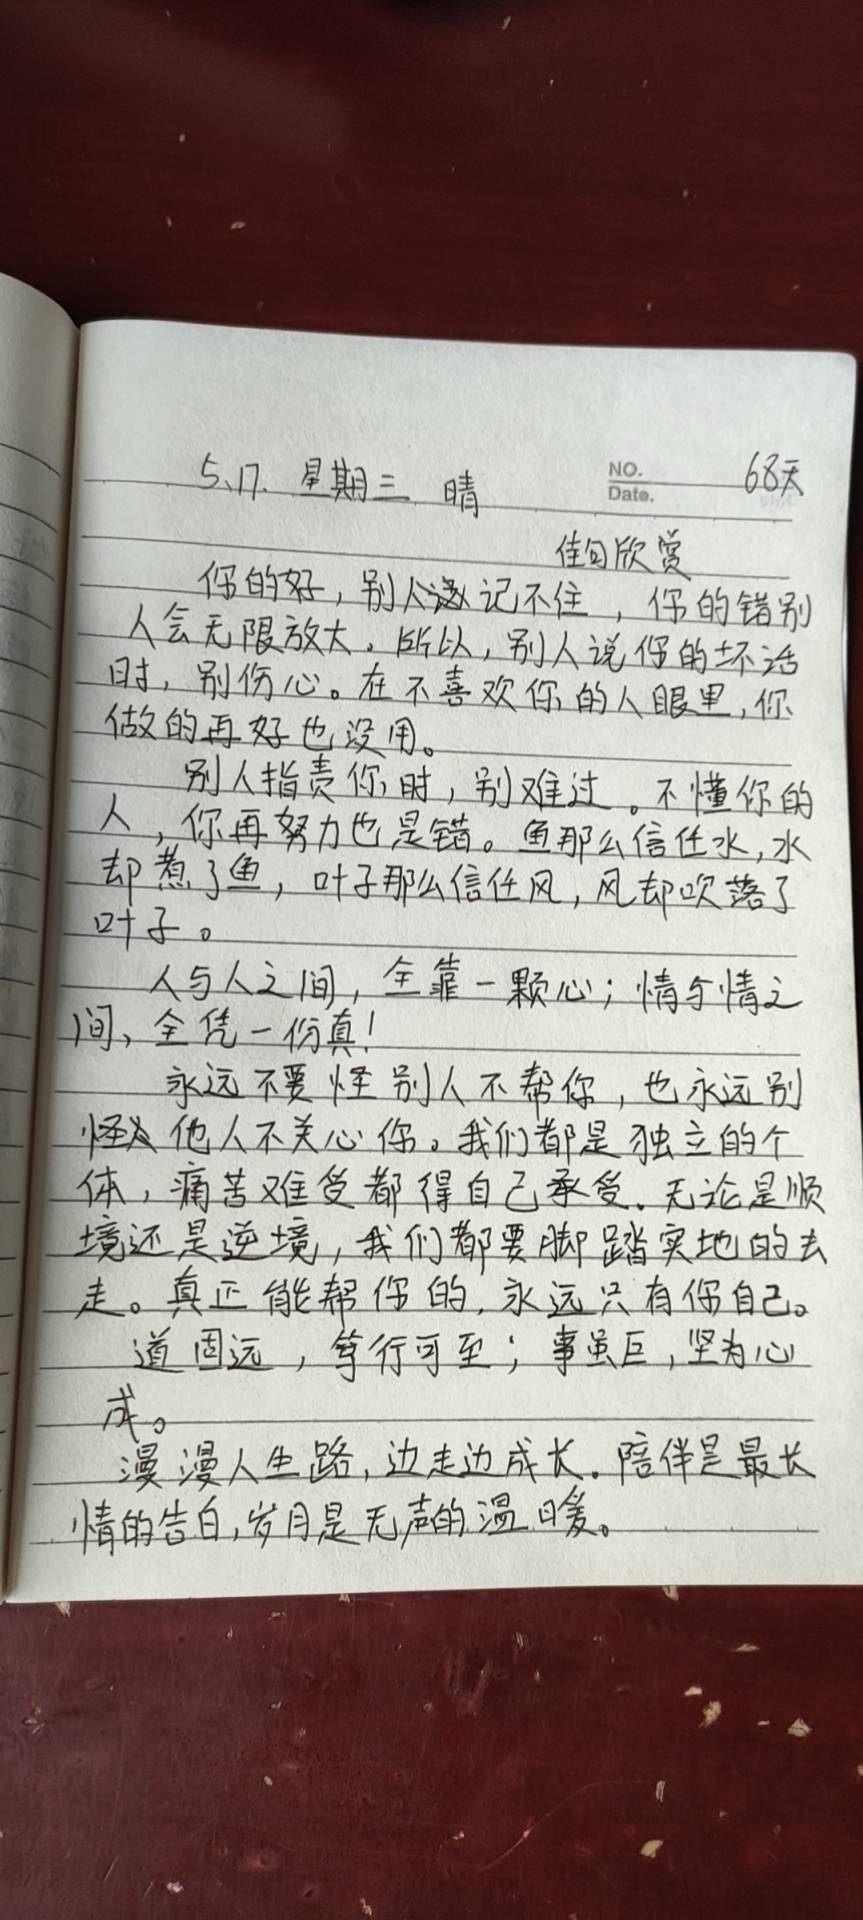 5.17. 星期三 晴 NO. Date. 68天
佳句欣赏
你的好，别人记不住，你的错别
人会无限放大。所以，别人说你的坏话
时，别伤心。在不喜欢你的人眼里，你
做的再好也没用。
别人指责你时，别难过。不懂你的
人，你再努力也是错。鱼那么信任水，水
却煮了鱼，叶子那么信任风，风却吹落了
叶子。
人与人之间，全靠一颗心；情与情之
间、全凭一份真！
永远不要怪别人不帮你，也永远别
怪他人不关心你。我们都是独立的个
体，痛苦难受都得自己承受。无论是顺
境还是逆境，我们都要脚踏实地的去
走。真正能帮你的，永远只有你自己。
道固远，笃行可至；事虽巨，坚为心
成。
漫漫人生路，边走边成长。陪伴是最长
情的告白，岁月是无声的温暖。